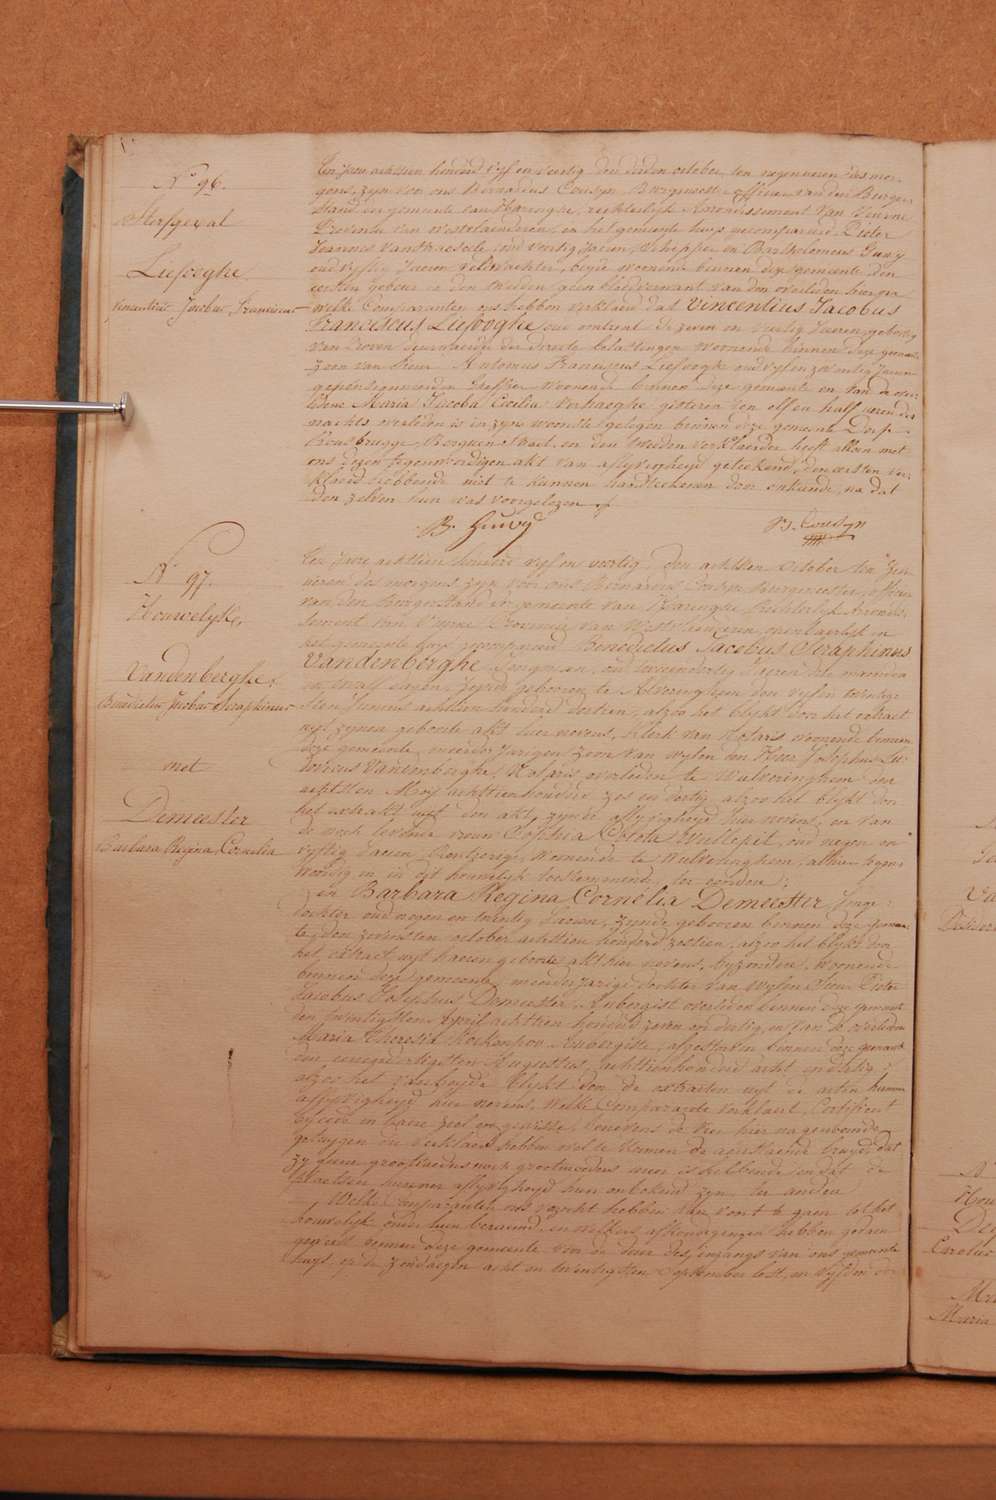 N° 96.
Sterfgeval
Liefooghe
Vincentius Jacobus Franciscus
Ten jaere achttien honderd vyf en veertig den derden october, ten negen ueren des mor-
gens, zyn voor ons Bernardus Cousyn, Burgemeester officier van den Burger-
stand der gemeente van Haringhe, rechterlyk Arrondissement van Veurne
Provincie van Westvlaenderen, en het gemeente huys gecompareerd Pieter
Joannes Vanstraeseele, oud veertig Jaeren, Schepper en Bartholomeus Guwy
oud vyftig Jaeren veldwachter, beyde woonende binnen deze gemeente, den
eersten gebuer en den tweeden geen bloedverwant van den overleden hier na
welke Comparanten ons hebben verklaerd dat Vincentius Jacobus
Franciscus Liefooghe, oud omtrent de zeven en veertig Jaeren, geboortig
van Proven deurwaerder der directe belastingen woonende binnen deze gemeente
zoon van Sieur Antonius Franciscus Liefooghe oud vyf en zeventig Jaeren
gepensioneerden woonende binnen deze gemeente en van de over-
ledene Maria Jacoba Cecilia Verhaeghe gisteren ten elf en half ueren des
nachts overleden is in zyne woonste gelegen binnen deze gemeente Dorp
Rousbrugge, Berguen straet, en den tweeden verklaerder heeft alleen met
ons dezen tegenwoordigen akt van aflyvigheyd geteekend, den eersten ver-
klaerd hebbende niet te kunnen handteekenen door onkunde, na dat
den zelven hun was voorgelezen
B. Guwy
B. Cousyn
N° 97.
Houwelyk,
Vandenberghe,
Benedictus Jacobus Seraphinus
met
Demeester
Barbara Regina Cornelia
Ten jaere achttien honderd vyf en veertig, den achtsten october ten zeven
ueren des morgens zyn voor ons Bernardus Cousyn Burgemeester, officier
van den Burgerstand der gemeente van Haringhe Rechterlyk Arrondis-
sement van Veurne Provincie van Westvlaenderen, openbaerlyk in
het gemeente huys gecompareerd Benedictus Jacobus Seraphinus
Vandenberghe Jongman, oud tweendertig Jaeren drie maenden
en twalf dagen, zynde geboren te Alveringhem den vyf en twintig-
sten Junius achttien honderd dertien, alzoo het blykt door het extract
uyt zynen geboorte akt hier nevens, Klerk van Notaris woonende binnen
deze gemeente, meerderjarigen zoon van wylen den Heer Josephus Lu-
dovicus Vandenberghe, Notaris overleden te Wulveringhem den
achtsten Mey achttienhonderd zes en dertig alzoo het blykt door
het extrakt uyt den akt zynde aflyvigheyd hier nevens, en van
de noch levende vrouw Sophia Carola Wullepit, oud negen en
vyftig Jaeren, Rentenierige, woonende te Wulveringhem, alhier tegen-
woordig en in dit houwelyk toestemmende, ter eender;
En Barbara Regina Cornelia Demeester Jonge-
dochter oud negen en twintig Jaeren, zynde geboren binnen deze gemeen-
te, den zevensten october achttien honderd zestien, alzoo het blykt door
het extract uyt haeren geboorte akt hier nevens, byzondere, woonende
binnen deze gemeente, meerderjarige dochter van wylen Sieur Pieter
Jacobus Josephus Demeester, Aubergist overleden binnen deze gemeente
den twintigsten April achttien honderd zeven en dertig, en van de overledene
Maria Theresia Aubergiste, afgestorven binnen deze gemeente
den eenendertigsten Augustus, achttienhonderd acht en dertig;
alzoo het zelve beyde blykt door de extracten uyt de acten hunner
aflyvigheyd hier nevens. Welke Comparante verklaert, Certifieert
by eede in haere ziel en gewisse, benevens de vier hier na genoemde
getuygen die verklaeren hebben wel te kennen de aenstaende bruyd dat
zy geene grootvaders noch grootmoeders meer is hebbende en dat de
plaetsen hunner aflyvigheyd hun onbekend zyn, ter andere
Welke Comparanten ons verzocht hebben van voort te gaen tot het
houwelyk onder hun beraemd en welkers afkondigingen hebben gedaen
geweest binnen deze gemeente voor de deur des ingangs van ons gemeente
huys op de zondaegen acht en twintigsten September lest, en vyfden